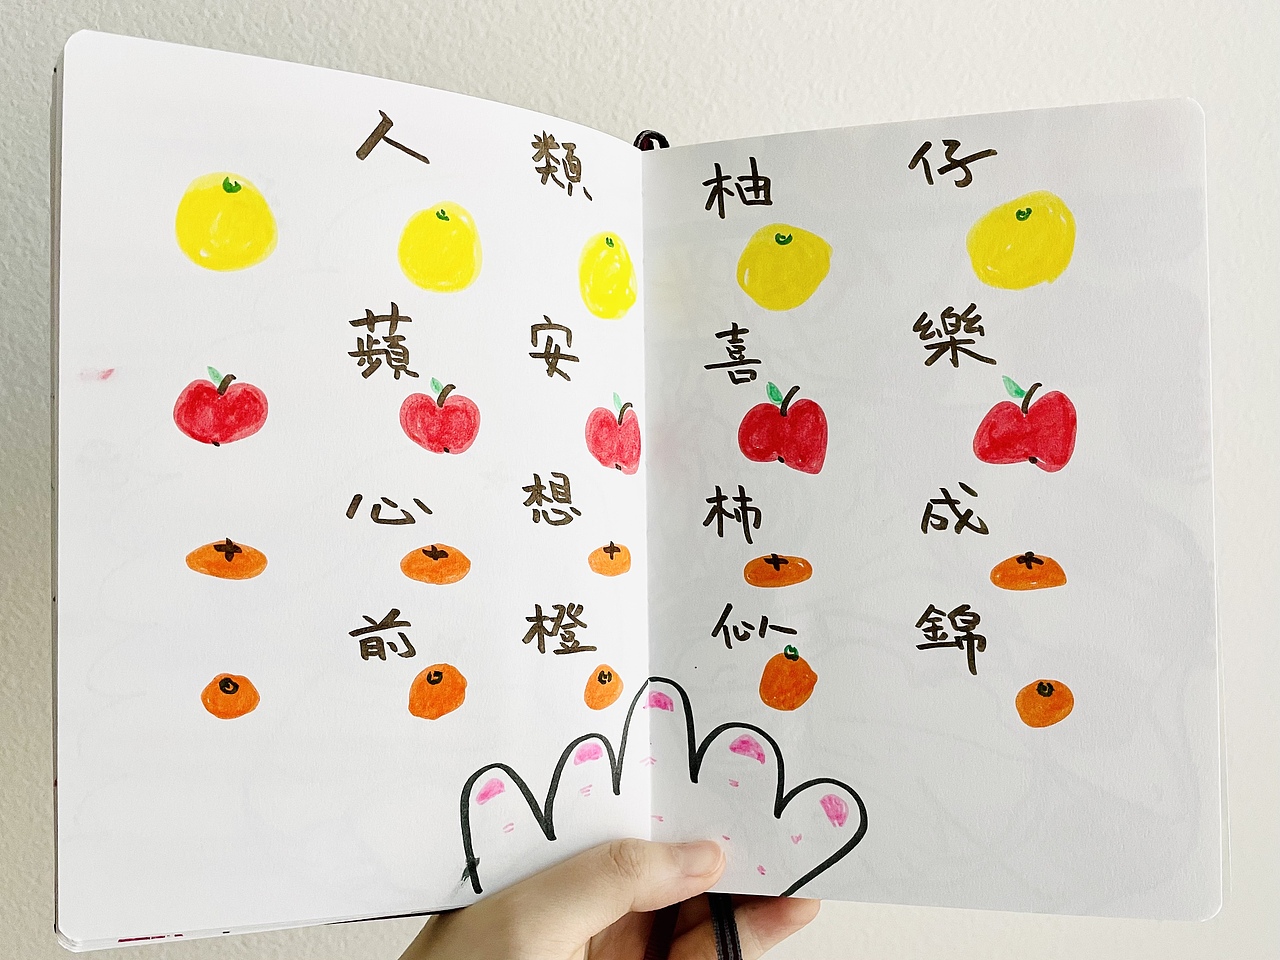 人類柚仔
蘋安喜樂
心想柿成
前橙似錦